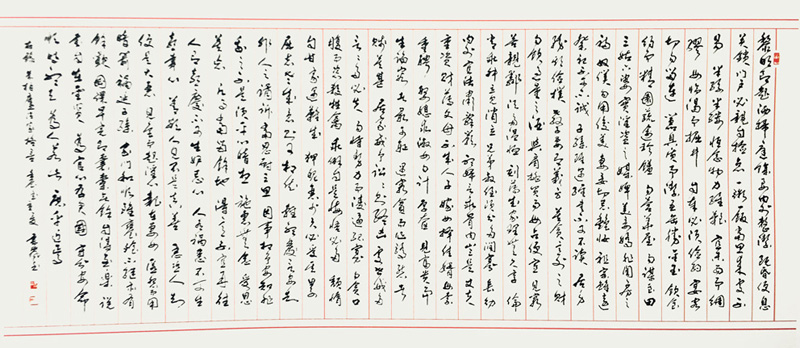 黎明即起洒掃庭除要內外整潔既昏便息
關鎖門戶必親自檢點一粥一飯當思來處不
易半絲半縷恆念物力維艱宜未雨而綢
繆毋臨渴而掘井自奉必須儉約宴客
切勿留連器具質而潔瓦缶勝金玉飲食
約而精園蔬愈珍饈勿營華屋勿謀良田
三姑六婆實淫盜之媒婢美妾嬌非閨房之
福奴僕勿用俊美妻妾切忌艷妝祖宗雖遠
祭祀不可不誠子孫雖愚經書不可不讀居身
務期儉樸教子要有義方莫貪意外之財
勿飲過量之酒與肩挑貿易毋占便宜見窮
苦親鄰須加溫恤刻薄成家理無久享倫
常乖舛立見消亡兄弟叔侄須分多潤寡長幼
內外宜法肅辭嚴聽婦言乖骨肉豈是丈夫
重資財薄父母不成人子嫁女擇佳婿毋索
重聘娶媳求淑女勿計厚奩見富貴而
生諂容者最可恥遇貧窮而作驕態者
賤莫甚居家戒爭訟訟則終凶處世戒多
言言多必失勿恃勢力而凌逼孤寡毋貪口
腹而恣殺牲禽乖僻自是悔誤必多頹惰
自甘家道難成狎昵惡少久必受其累
屈志老成急則可相依輕聽發言安知
非人之譖訴當忍耐三思因事相爭安知非
我之不是須平心暗想施惠無念受恩
莫忘凡事當留餘地得意不宜再往
人有喜慶不可生妒忌心人有禍患不可生
喜幸心善欲人見不是真善惡恐人知
便是大惡見色而起淫心報在妻女匿怨而用
暗箭禍延子孫家門和順雖饔飧不繼亦有
餘歡國課早完即囊橐無餘自得至樂讀
書志在聖賢為官心存君國守分安命
順時聽天為人若此庶乎近焉
右錄朱柏廬治家格言